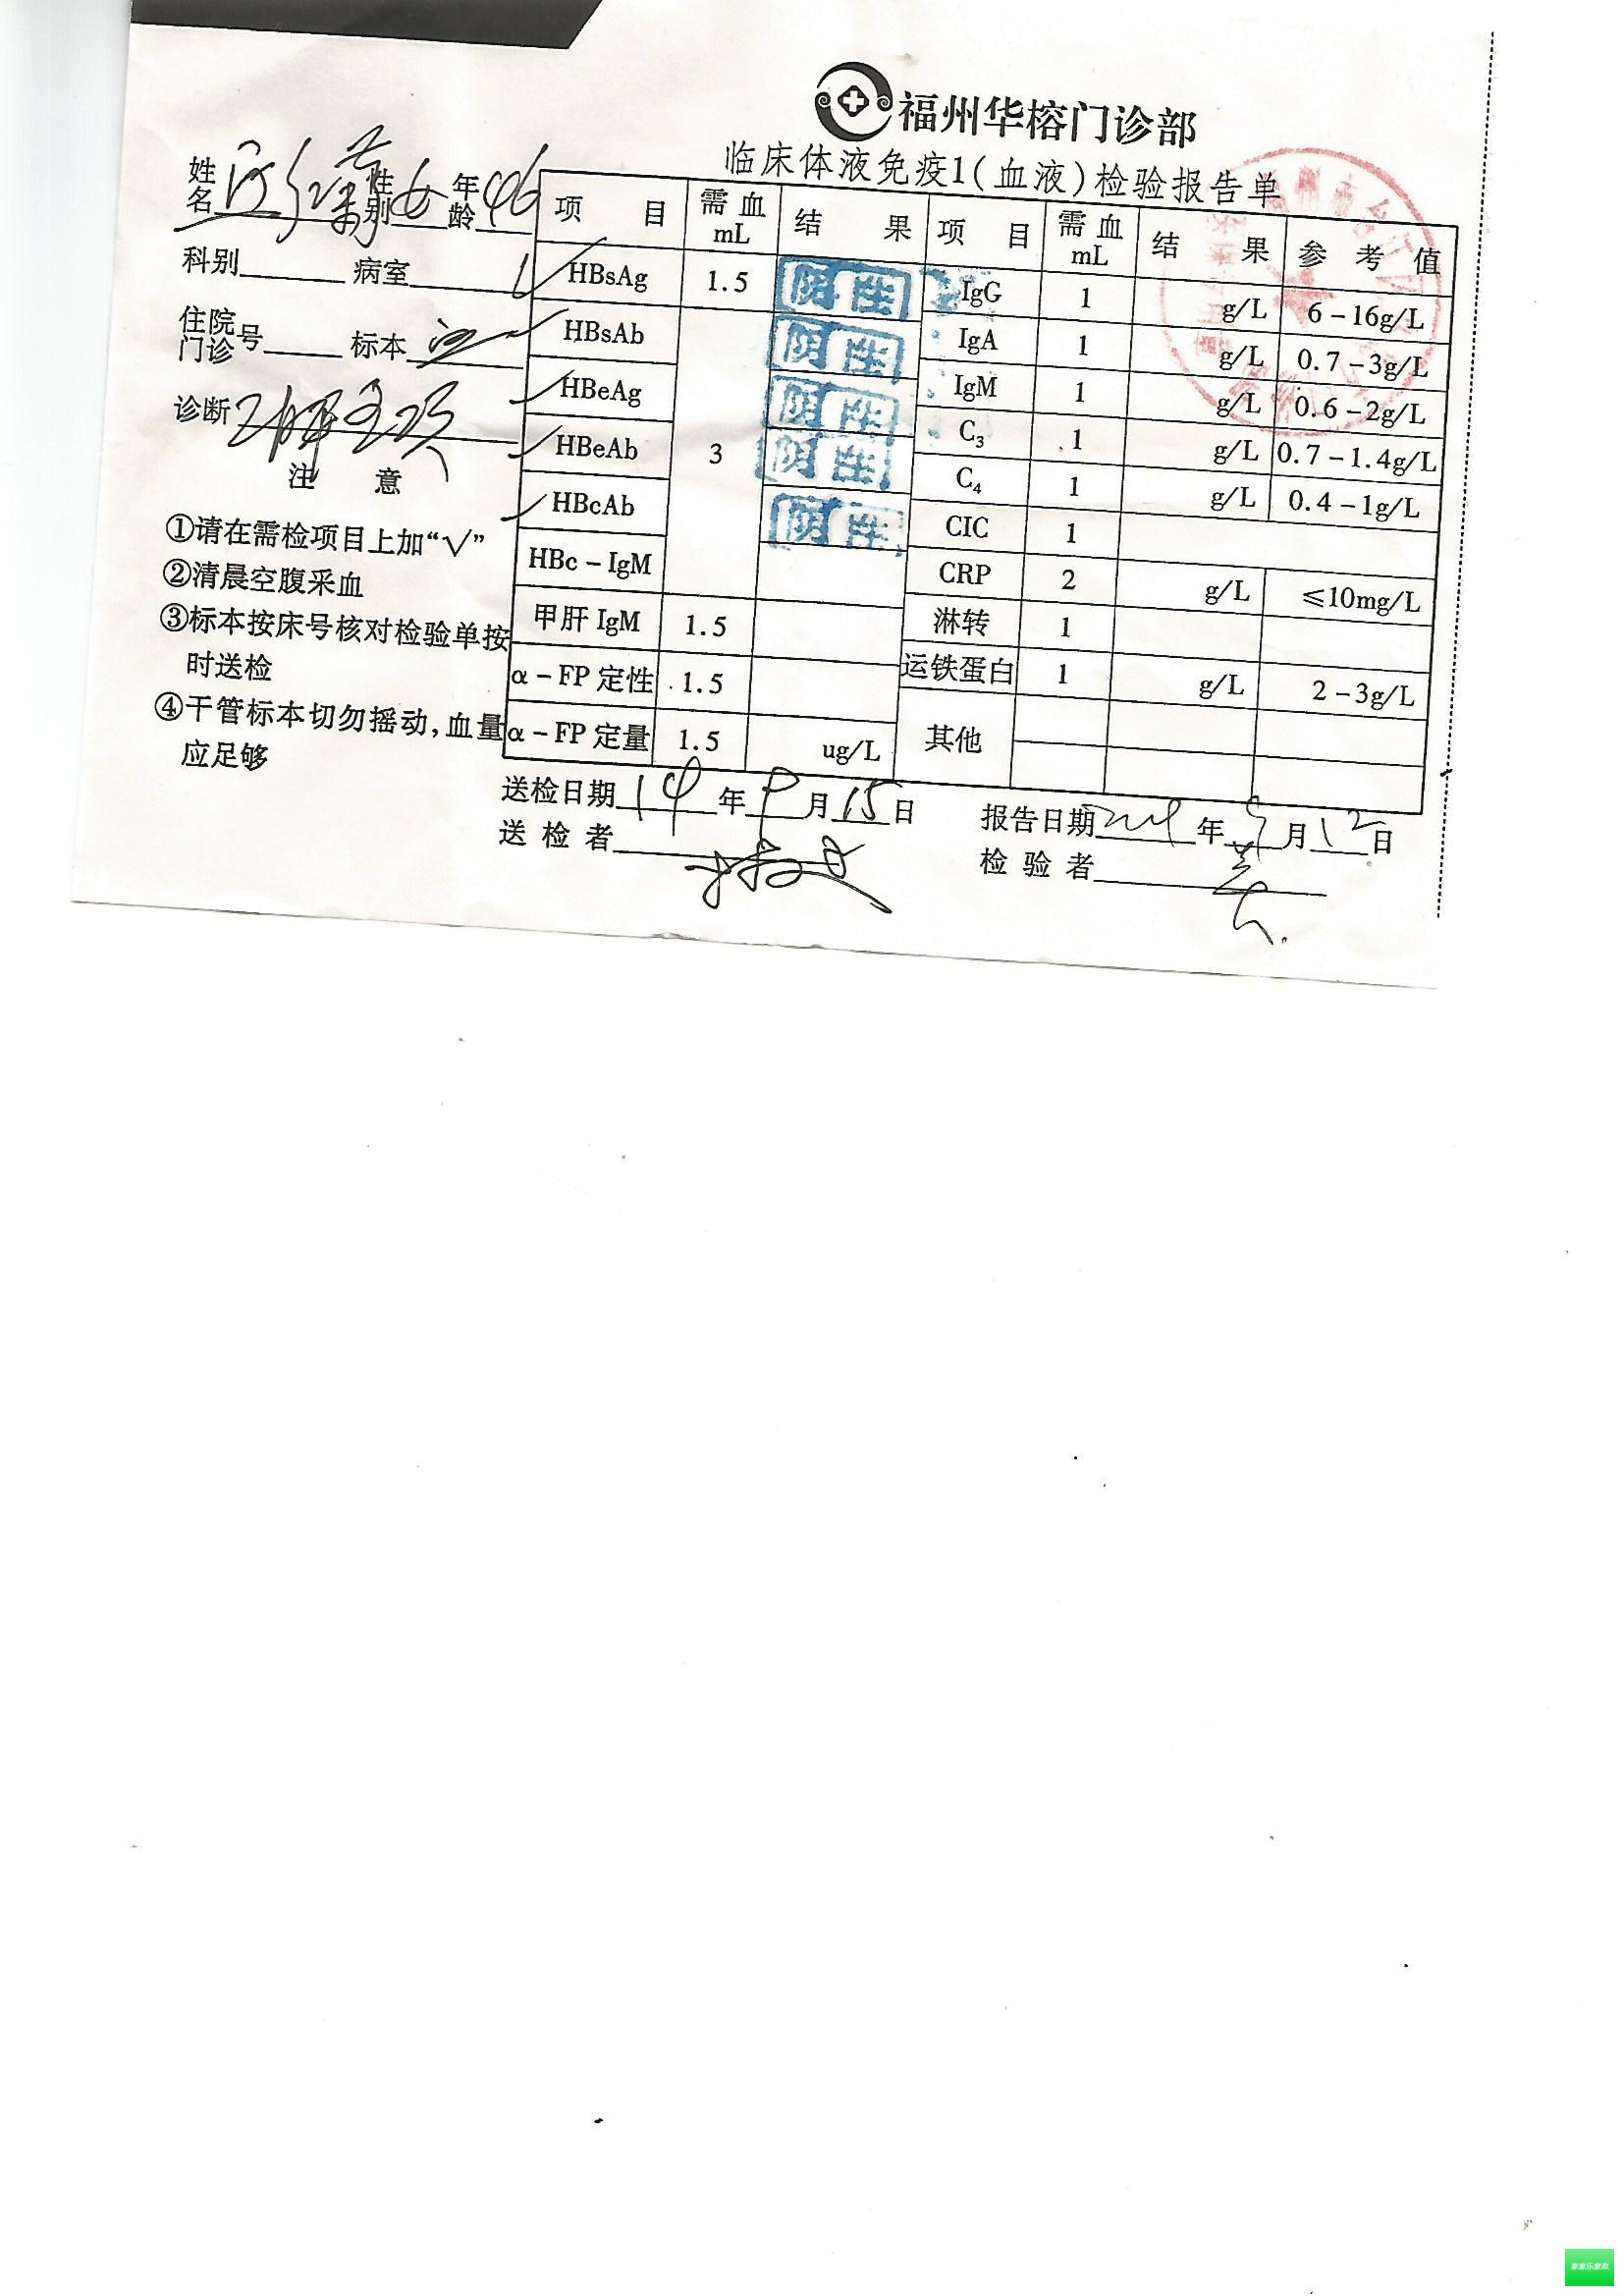 福州华榕门诊部
临床体液免疫1(血液)检验报告单
姓名 性别 女 年龄 46
科别 病室
住院门诊号 标本
诊断
注 意
①请在需检项目上加“√”
②清晨空腹采血
③标本按床号核对检验单按
时送检
④干管标本切勿摇动,血量
应足够
项 目 需血mL 结 果 项 目 需血mL 结 果 参 考 值
HBsAg 1.5 阴性 IgG 1 g/L 6-16g/L
HBsAb 阴性 IgA 1 g/L 0.7-3g/L
HBeAg 阴性 IgM 1 g/L 0.6-2g/L
HBeAb 3 阴性 C3 1 g/L 0.7-1.4g/L
C4 1 g/L 0.4-1g/L
HBcAb 阴性 CIC 1
HBc-IgM CRP 2 g/L ≤10mg/L
甲肝 IgM 1.5 淋转 1
α-FP 定性 1.5 运铁蛋白 1 g/L 2-3g/L
α-FP 定量 1.5 ug/L 其他
送检日期 14 年 9 月 15 日 报告日期 年 月 日
送 检 者 检 验 者